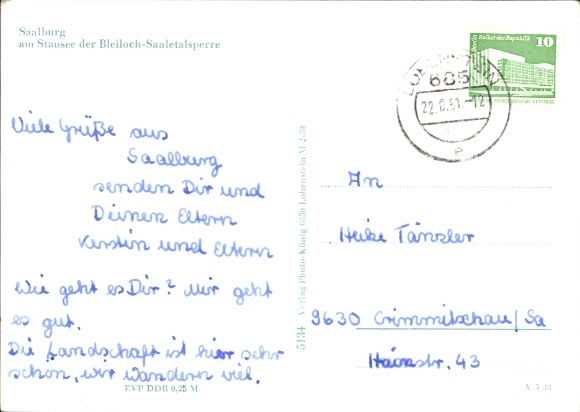 Saalburg
am Stausee der Bleiloch-Saaletalsperre
Berlin Palast der Republik 10
LOBENSTEIN
685
22.6.81.-12
Viele Grüße aus
Saalburg
senden Dir und
Deinen Eltern
Kerstin und Eltern
Wie geht es Dir? Mir geht
es gut.
Die Landschaft ist hier sehr
schön, wir wandern viel.
EVP DDR 0,25 M
5134 Verlag Photo-König 6850 Lobenstein
An
Heike Tänzler
9630 Crimmitschau/Sa
Hainstr. 43